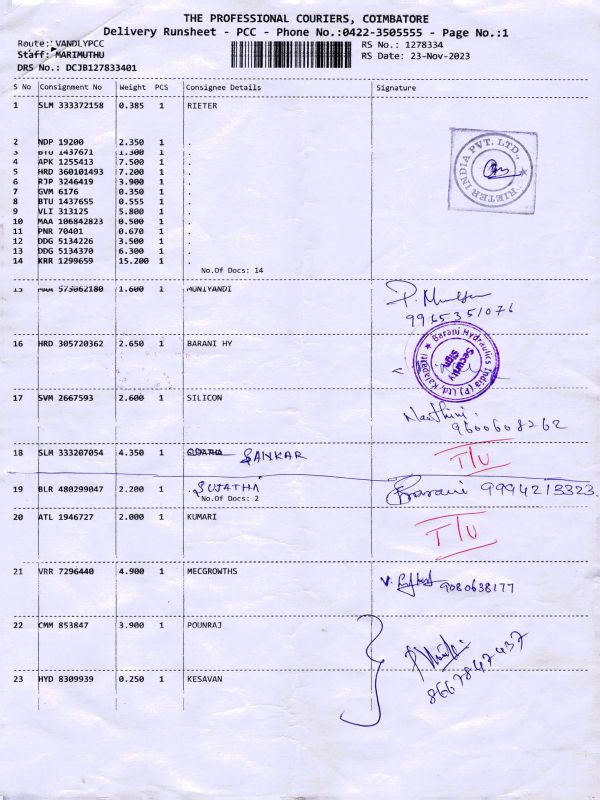 THE PROFESSIONAL COURIERS, COIMBATORE
Delivery Runsheet - PCC - Phone No.:0422-3505555 - Page No.:1
Route: VANDLYPCC
RS No.: 1278334
Staff: MARIMUTHU
RS Date: 23-Nov-2023
DRS No.: DCJB127833401
S No Consignment No Weight PCS Consignee Details Signature
1 SLM 333372158 0.385 1 RIETER
2 NDP 19200 2.350 1 .
3 BTU 1437671 1.300 1 .
4 APK 1255413 7.500 1 .
5 HRD 360101493 7.200 1 .
6 RJP 3246419 3.900 1 .
7 GVM 6176 0.350 1 .
8 BTU 1437655 0.555 1 .
9 VLI 313125 5.800 1 .
10 MAA 106842823 0.500 1 .
11 PNR 70401 0.670 1 .
12 DDG 5134226 3.500 1 .
13 DDG 5134370 6.300 1 .
14 KRR 1299659 15.200 1 .
RIETER INDIA PVT. LTD.,
No.Of Docs: 14
15 MAA 573062180 1.600 1 MUNIYANDI
9965351076
16 HRD 305720362 2.650 1 BARANI HY
Barani Hydraulics India (P) Ltd, Kalapatti
Security Sign
17 SVM 2667593 2.600 1 SILICON
Nanthini.
9600608262
18 SLM 333207054 4.350 1 SUJATHA SANKAR T/U
19 BLR 480299047 2.200 1 SUJATHA Barani 9994213323.
No.Of Docs: 2
20 ATL 1946727 2.000 1 KUMARI T/U
21 VRR 7296440 4.900 1 MECGROWTHS
9080638177
22 CMM 853847 3.900 1 POUNRAJ
8667847437
23 HYD 8309939 0.250 1 KESAVAN